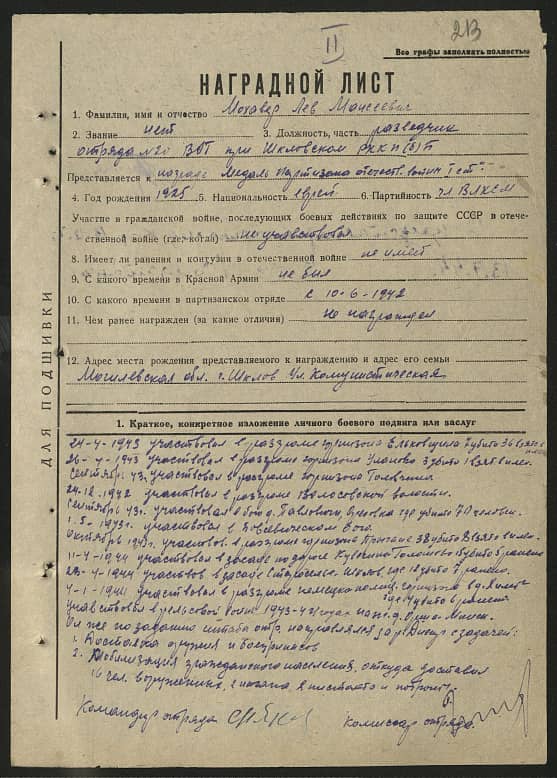 213
II
Все графы заполнять полностью
НАГРАДНОЙ ЛИСТ
1. Фамилия, имя и отчество Мохавер Лев Моисеевич
2. Звание нет 3. Должность, часть разведчик
отряда №20 ВОГ при Шкловском РККП(б)Б
Представляется к награде Медаль Партизана отечеств. войны I ст
4. Год рождения 1925 5. Национальность еврей 6. Партийность чл ВЛКСМ
Участие в гражданской войне, последующих боевых действиях по защите СССР в отече-
ственной войне (где, когда) не участвовал
8. Имеет ли ранения и контузии в отечественной войне не имеет
9. С какого времени в Красной Армии не был
10. С какого времени в партизанском отряде с 10-6-1942
11. Чем ранее награжден (за какие отличия) не награжден
12. Адрес места рождения представляемого к награждению и адрес его семьи
Могилевская обл. г. Шклов Ул. Комунистическая
ДЛЯ ПОДШИВКИ
1. Краткое, конкретное изложение личного боевого подвига или заслуг
24-4-1943 участвовал в раззроме горнизона убито 36 взято
26-4-1943 участвовал в раззроме горнизона Уланово убито 1 взят в плен.
Сентябрь 43. участвовал в разгроме горнизона
24.12.1942 участвовал в разгроме волости.
Сентябрь 43г. участвовал в бою д. Павловичи, где убито 70 человек.
1.5-1943г. участвовал в бою.
Октябрь 1943г. участвовал. в раззром горнизона 38 убито 8 взято в плен.
11-4-1944 участвовал в засаде по дороге 15 убито 5 ранено
23-4-1944 участвов в засаде Староселье-Шклов, где 18 убито 7 ранено.
4-1-1944 участвовал в разгроме немецко полиц. горнизона в д.
участвовал в рельсовой войне 1943-44 годах на ж.д. Орша-Минск.
Он же по заданию штаба отр. направлялся за р. Днепр с задачей:
1. Доставка оружия и боеприпасов
2. Мобилизация гражданского населения, откуда доставил
16 чел. вооруженных, 2 нагана, 2 пистолета и патроны.
Командир отряда Комиссар отряда.